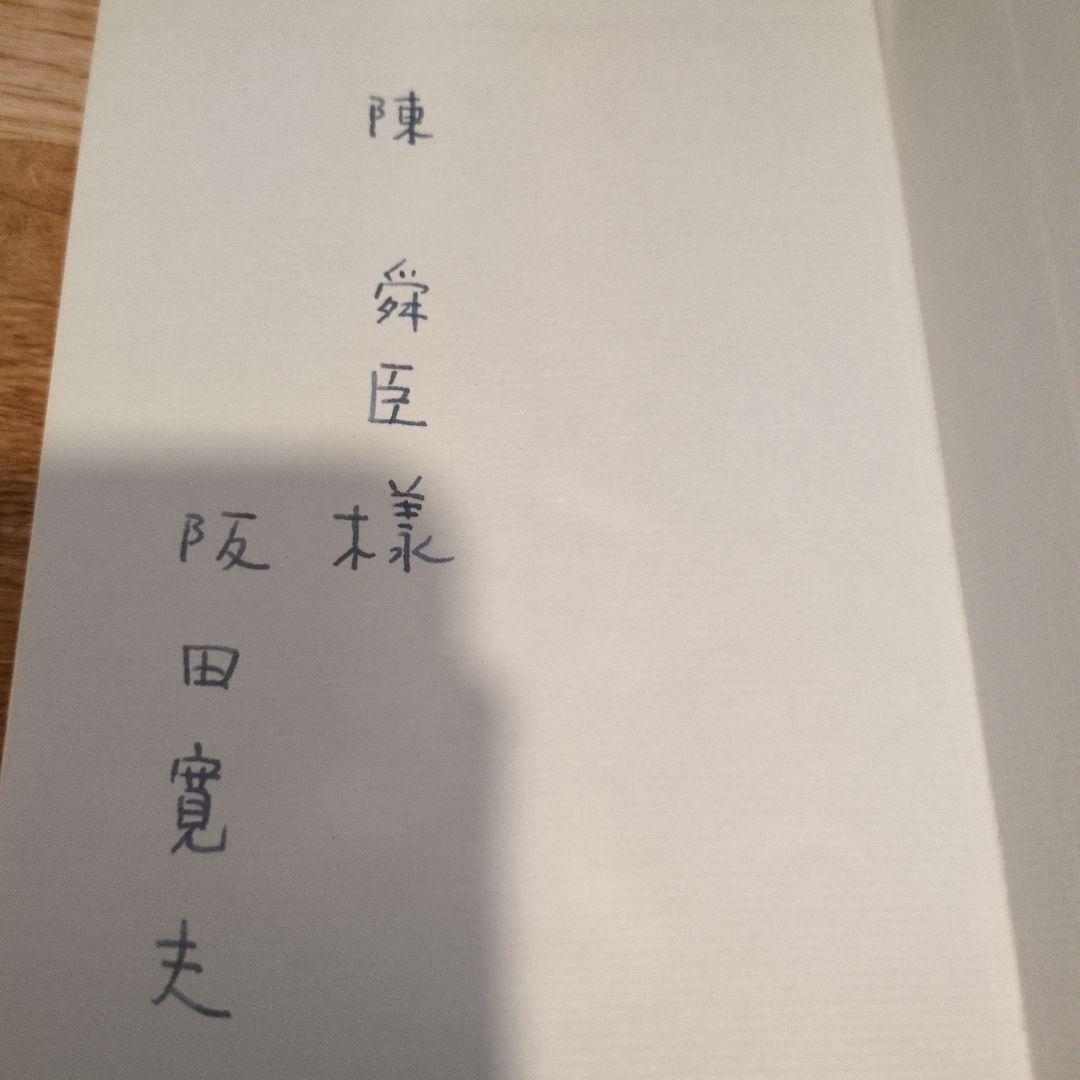 陳 舜臣様
阪田寛夫